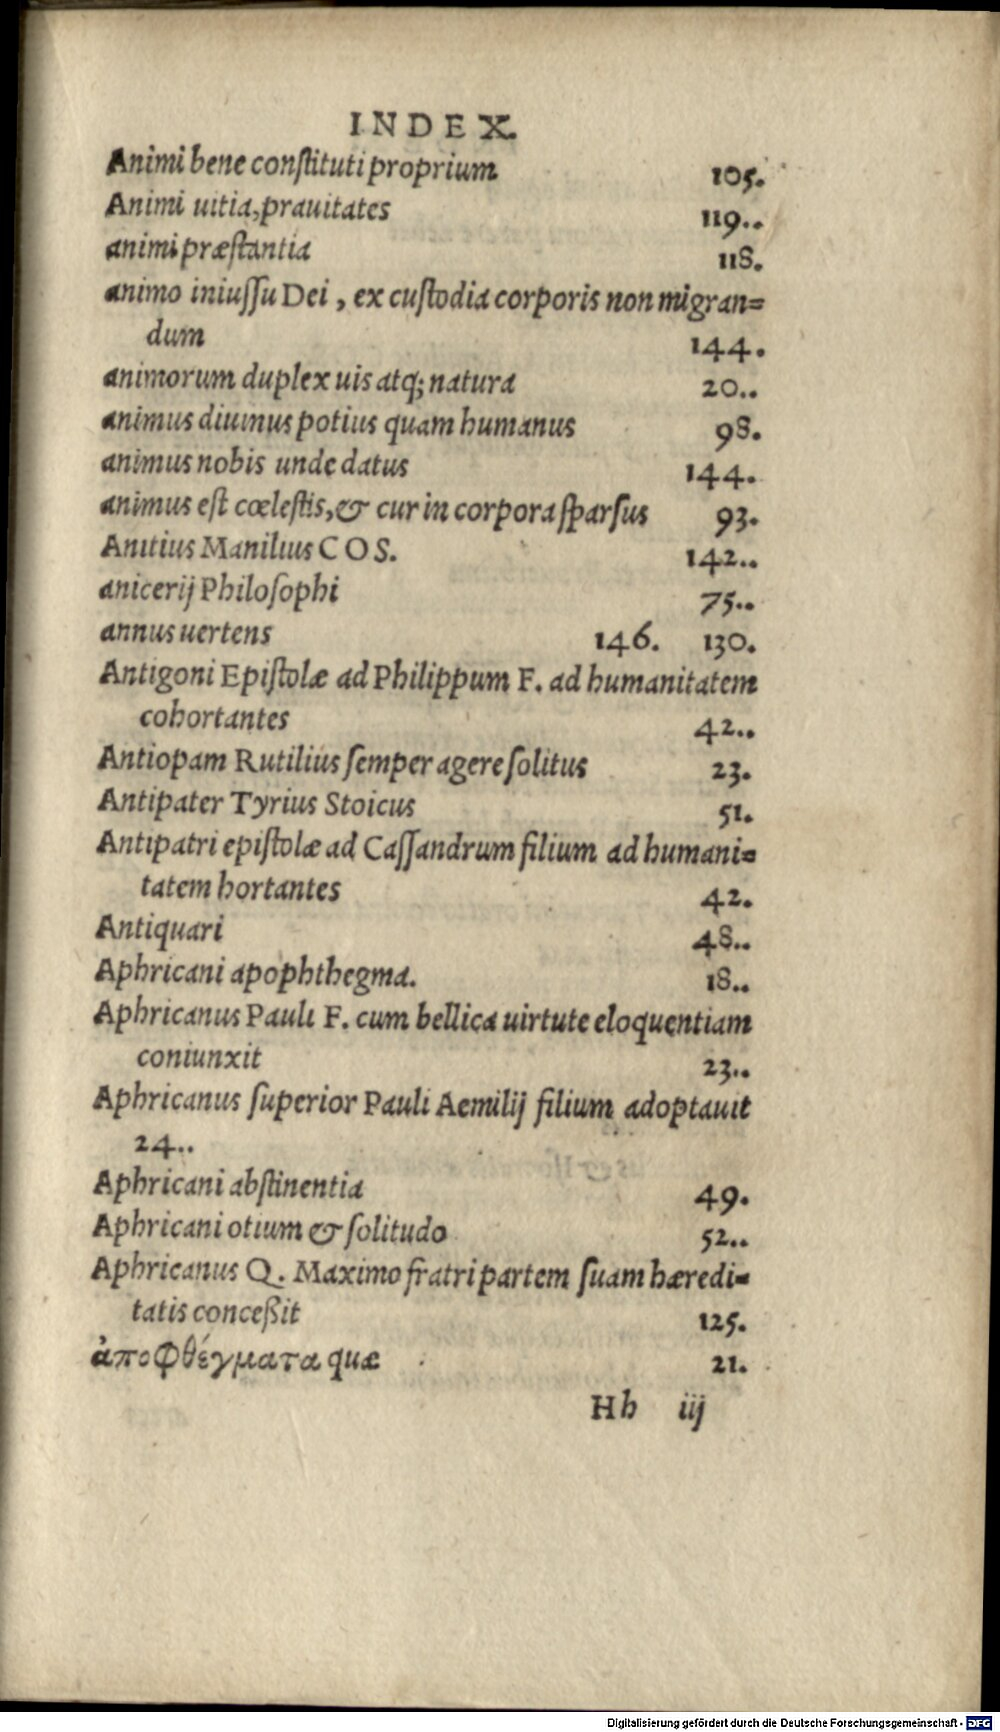 INDEX.
Animi bene conſtituti proprium 105.
Animi uitia, prauitates 119..
animi præſtantia 118.
animo iniuſſu Dei, ex cuſtodia corporis non migran=
dum 144.
animorum duplex uis atq; natura 20..
animus diuinus potius quam humanus 98.
animus nobis unde datus 144.
animus eſt cœleſtis, & cur in corpora ſparſus 93.
Anitius Manilius COS. 142..
anicerij Philoſophi 75..
annus uertens 146. 130.
Antigoni Epiſtolæ ad Philippum F. ad humanitatem
cohortantes 42..
Antiopam Rutilius ſemper agere ſolitus 23.
Antipater Tyrius Stoicus 51.
Antipatri epiſtolæ ad Caſſandrum filium ad humani=
tatem hortantes 42.
Antiquari 48..
Aphricani apophthegma. 18..
Aphricanus Pauli F. cum bellica uirtute eloquentiam
coniunxit 23..
Aphricanus ſuperior Pauli Aemilij filium adoptauit
24..
Aphricani abſtinentia 49.
Aphricani otium & ſolitudo 52..
Aphricanus Q. Maximo fratri partem ſuam hæredi=
tatis conceßit 125.
ἀποφθέγματα quæ 21.
Hh iij
Digitalisierung gefördert durch die Deutsche Forschungsgemeinschaft - DFG